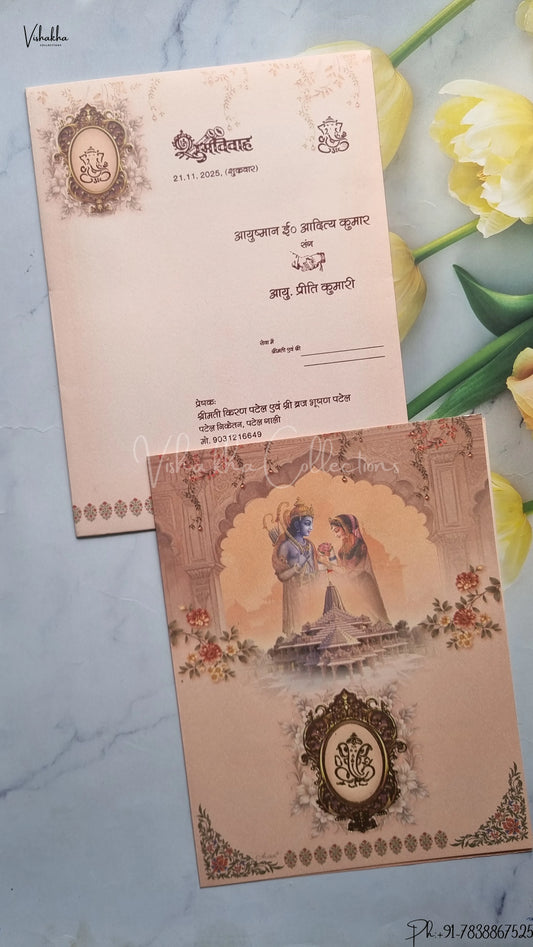 Vishakha
COLLECTIONS
शुभविवाह
21.11.2025, (शुक्रवार)
आयुष्मान ई० आदित्य कुमार
संग
आयु. प्रीति कुमारी
सेवा में
श्रीमती एवं श्री
प्रेषकः
श्रीमती किरण पटेल एवं श्री ब्रज भूषण पटेल
पटेल निकेतन, पटेल गली
मो. 9031216649
Vishakha Collections
Ph:+91-7838867525